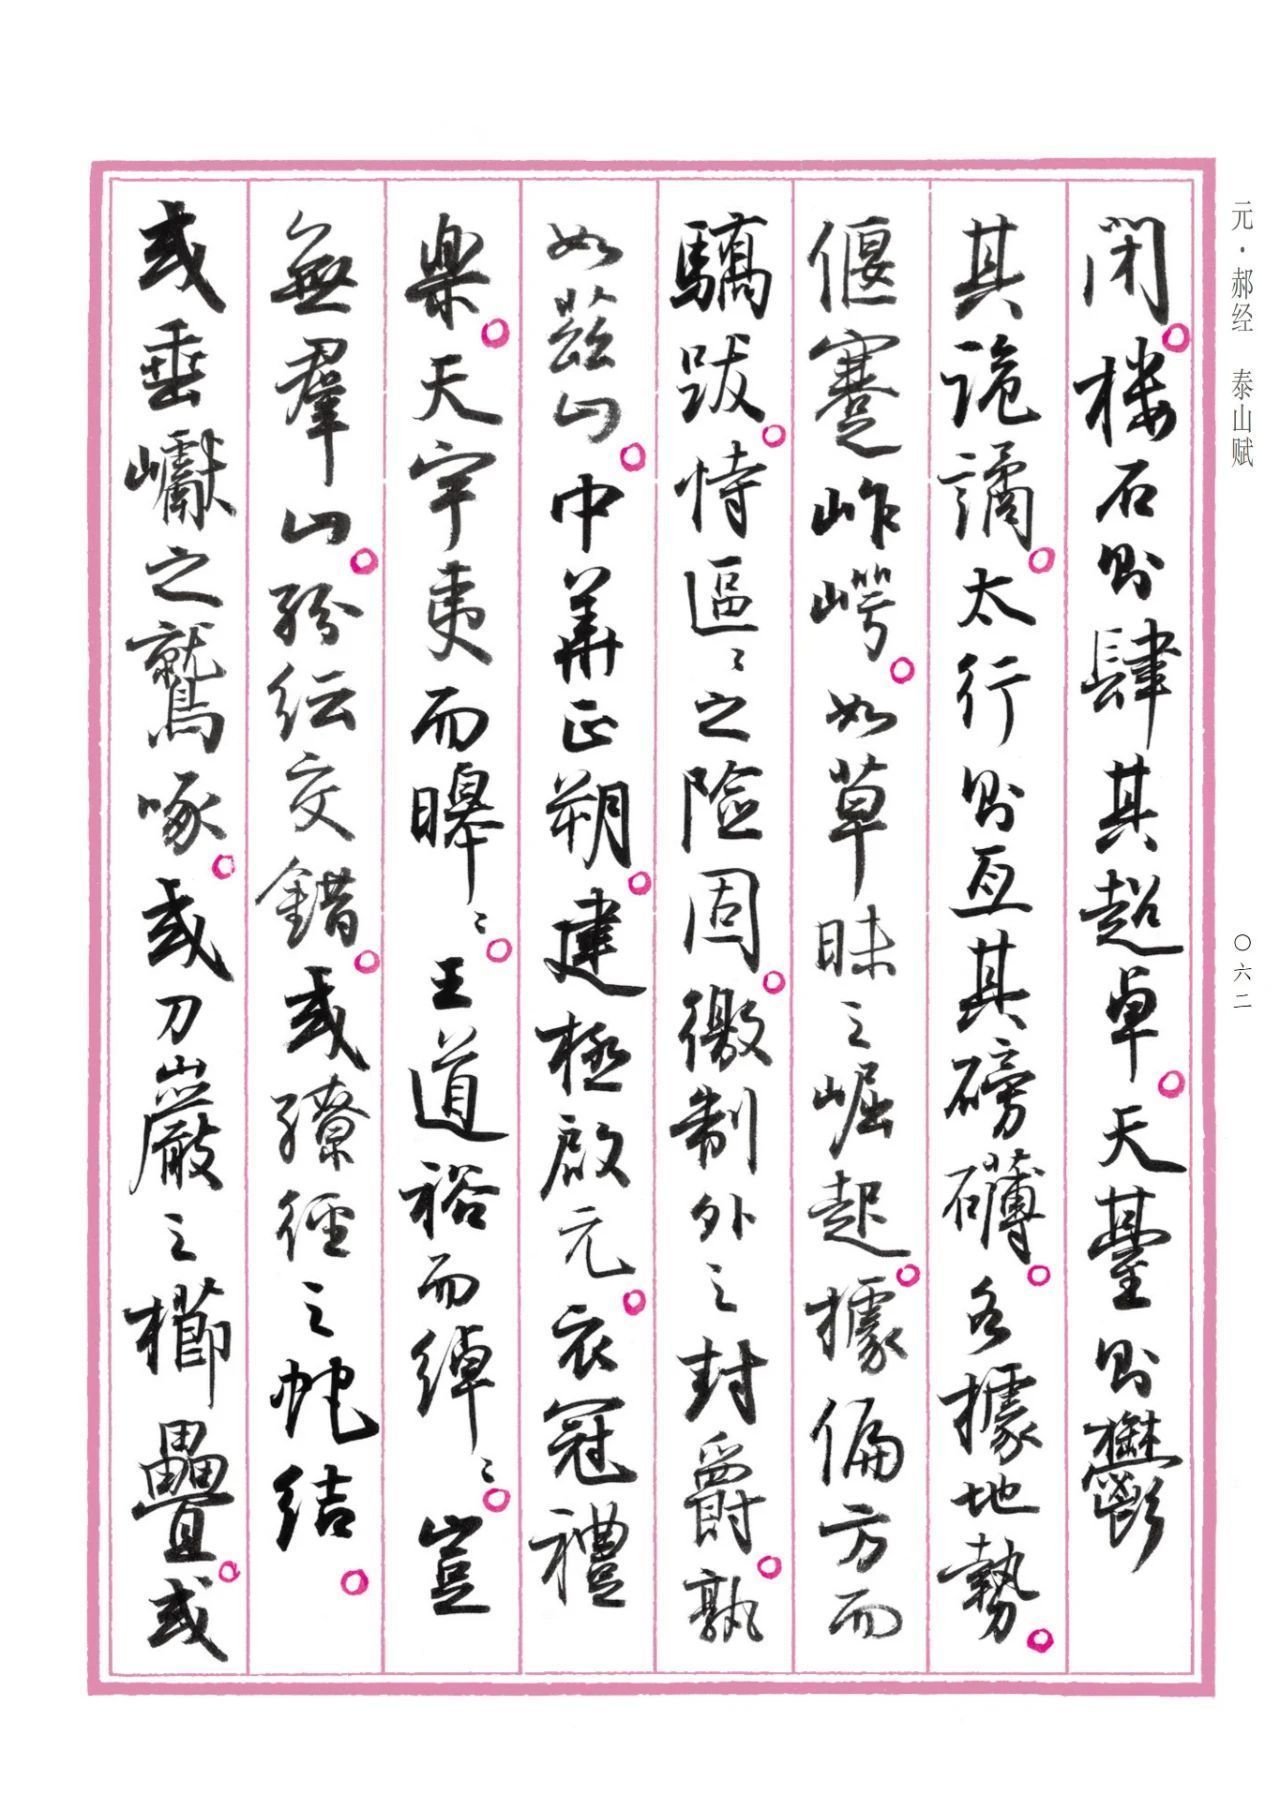 元·郝经 泰山赋
〇六二
閉。樓石則肆其超卓。天臺則鬱
其詭譎。太行則亙其磅礴。各據地勢。
偃蹇岞崿。如草昧之崛起。據偏方而
驕跋。恃逼〻之險固。徼制外之封爵。孰
如茲山。中華正朔。建極啟元。衣冠禮
樂。天宇夷而暤〻。王道裕而綽〻。豈
無羣山。紛紜交錯。或繚徑之蛇結。
或垂巘之鷲啄。或刀巖之櫛疊。或